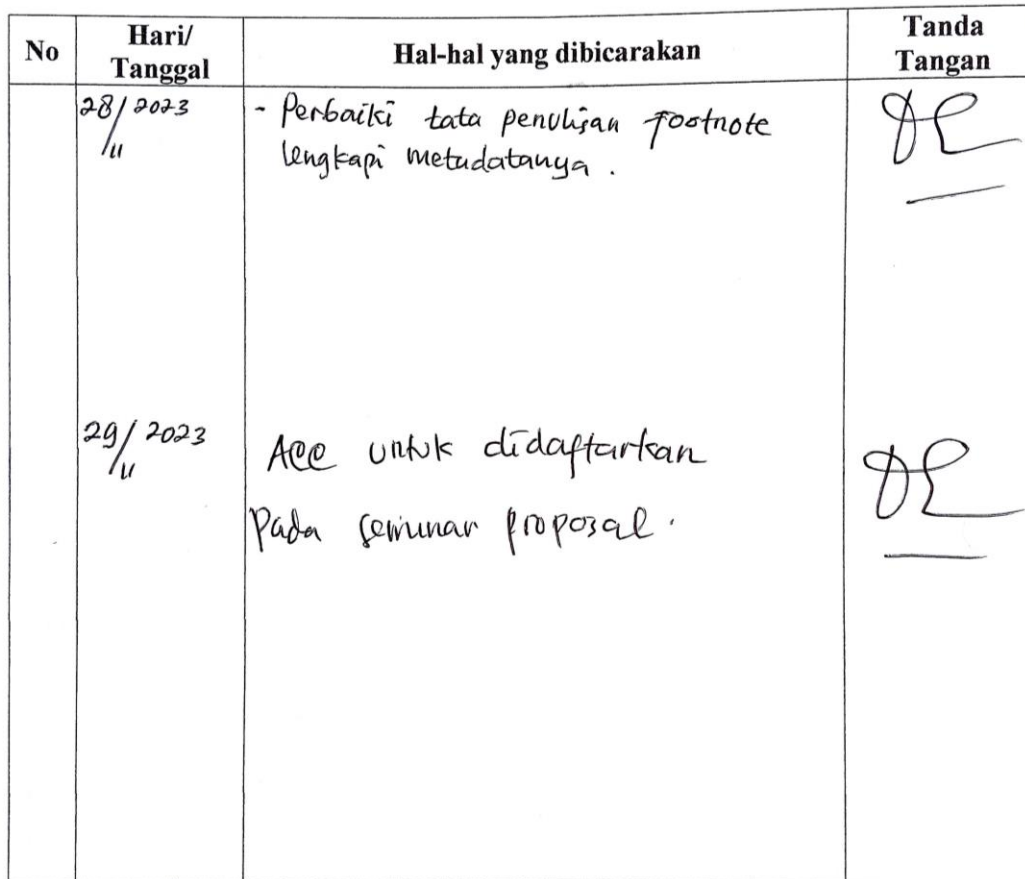 No
Hari/
Tanggal
Hal-hal yang dibicarakan
Tanda
Tangan
28/2023
/11
- Perbaiki tata penulisan footnote
lengkapi metadatanya.
29/2023
/11
Acc untuk didaftarkan
Pada seminar proposal.